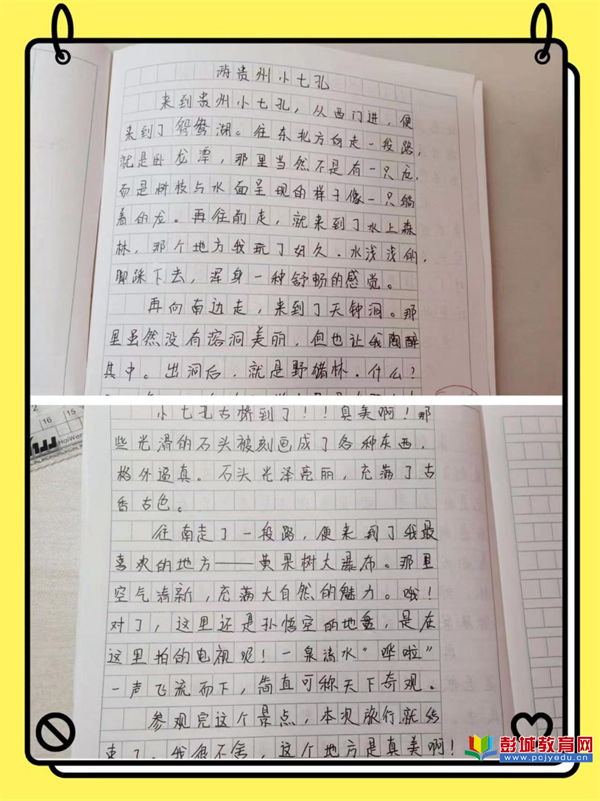 游贵州小七孔
来到贵州小七孔，从西门进，便
来到了鸳鸯湖。往东北方向走一段路，
就是卧龙潭，那里当然不是有一只龙，
而是树枝与水面呈现的样子像一只躺
着的龙。再往前走，就来到了水上森
林，那个地方我玩了好久。水浅浅的，
脚踩下去，浑身一种舒畅的感觉。
再向南边走，来到了天钟洞。那
里虽然没有溶洞美丽，但也让我陶醉
其中。出洞后，就是野猪林。什么？
小七孔古桥到了！！真美啊！那
些光滑的石头被刻画成了各种东西，
格外逼真。石头光泽亮丽，充满了古
香古色。
往南走了一段路，便来到了我最
喜欢的地方——黄果树大瀑布。那里
空气清新，充满大自然的魅力。哦！
对了，这里还是孙悟空的地盘，是在
这里拍的电视呢！一泉流水“哗啦”
一声飞流而下，简直可称天下奇观。
参观完这个景点，本次旅行就结
束了，我很不舍，这个地方是真美啊！
15 16 17
彭城教育网
www.pcjyedu.cn